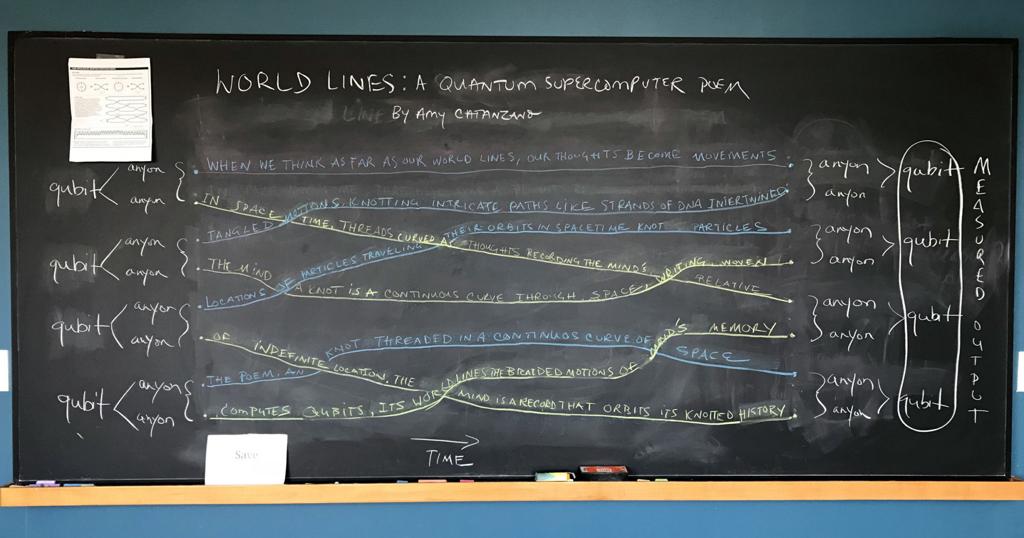 WORLD LINES: A QUANTUM SUPERCOMPUTER POEM
BY AMY CATANZANO
qubit
anyon
anyon
qubit
anyon
anyon
qubit
anyon
anyon
qubit
anyon
anyon
WHEN WE THINK AS FAR AS OUR WORLD LINES, OUR THOUGHTS BECOME MOVEMENTS
IN SPACE TIME, THREADS CURVED AS THOUGHTS RECORDING THE MIND'S WRITING, RELATIVE
TANGLED MOTIONS, KNOTTING INTRICATE PATHS LIKE STRANDS OF DNA INTERTWINED
THE MIND A KNOT IS A CONTINUOUS CURVE THROUGH SPACE, WRITING, WOVEN
LOCATIONS OF PARTICLES TRAVELING THEIR ORBITS IN SPACETIME KNOT PARTICLES
OF INDEFINITE LOCATION, THE WORLD MIND IS A RECORD THAT ORBITS ITS KNOTTED HISTORY
THE POEM, AN KNOT THREADED IN A CONTINUOS CURVE OF SPACE
COMPUTES QUBITS, ITS WORLD LINES THE BRAIDED MOTIONS OF MIND'S MEMORY
anyon
anyon
qubit
anyon
anyon
qubit
anyon
anyon
qubit
anyon
anyon
qubit
MEASURED OUTPUT
Save
TIME